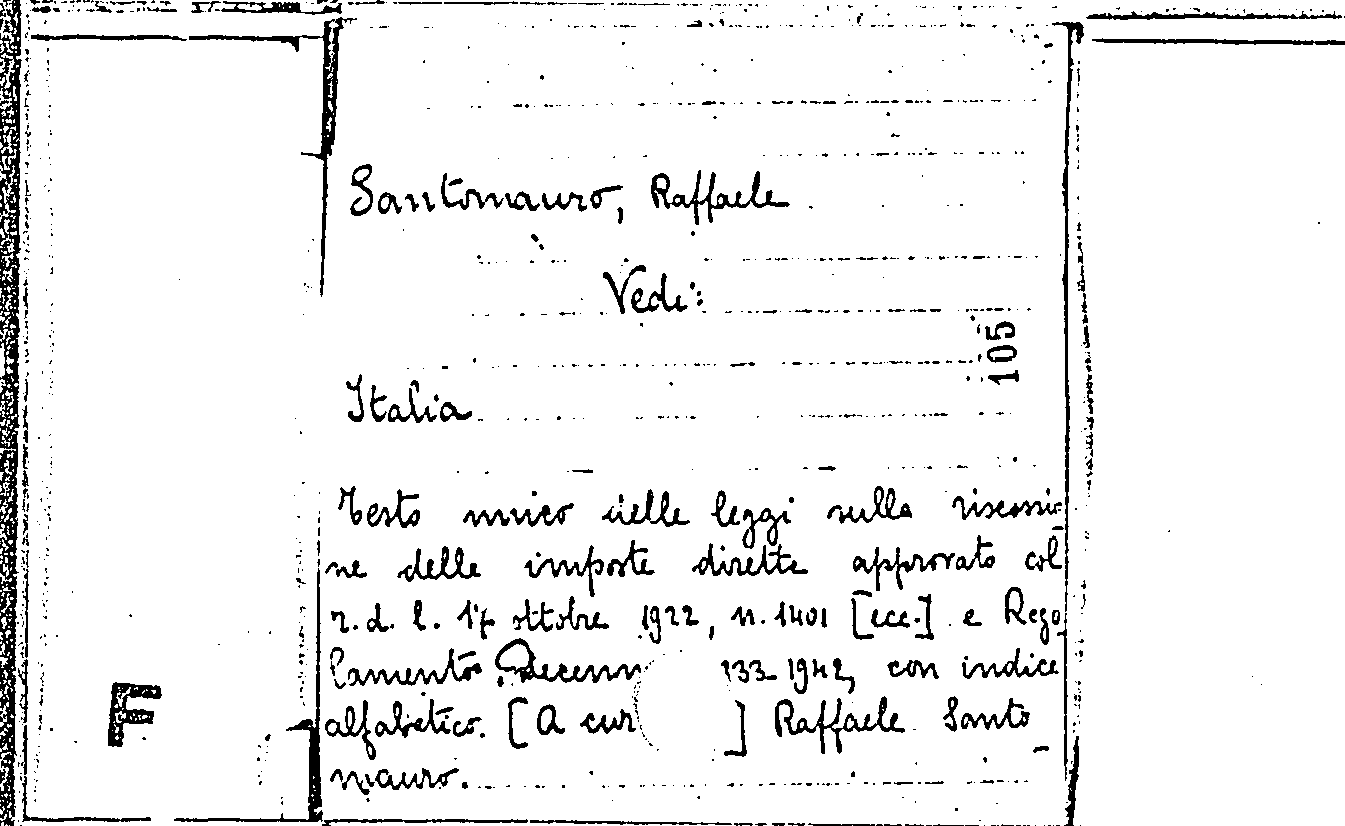 Santomauro, Raffaele
Vedi:
105
Italia
Testo unico delle leggi sulla riscossio-
ne delle imposte dirette approvato col
r. d. l. 17 ottobre 1922, n. 1401 [ecc.] e Rego-
lamento. 1942, con indice
alfabetico. [A cur ] Raffaele Santo-
mauro.
F